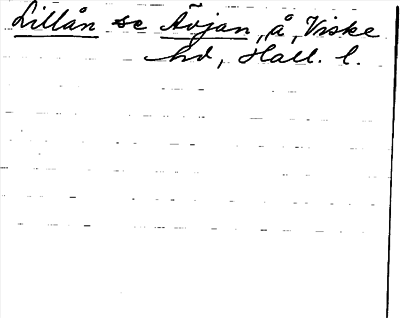 Lillån se Ãvjan, å, Viske
hd, Hall. l.